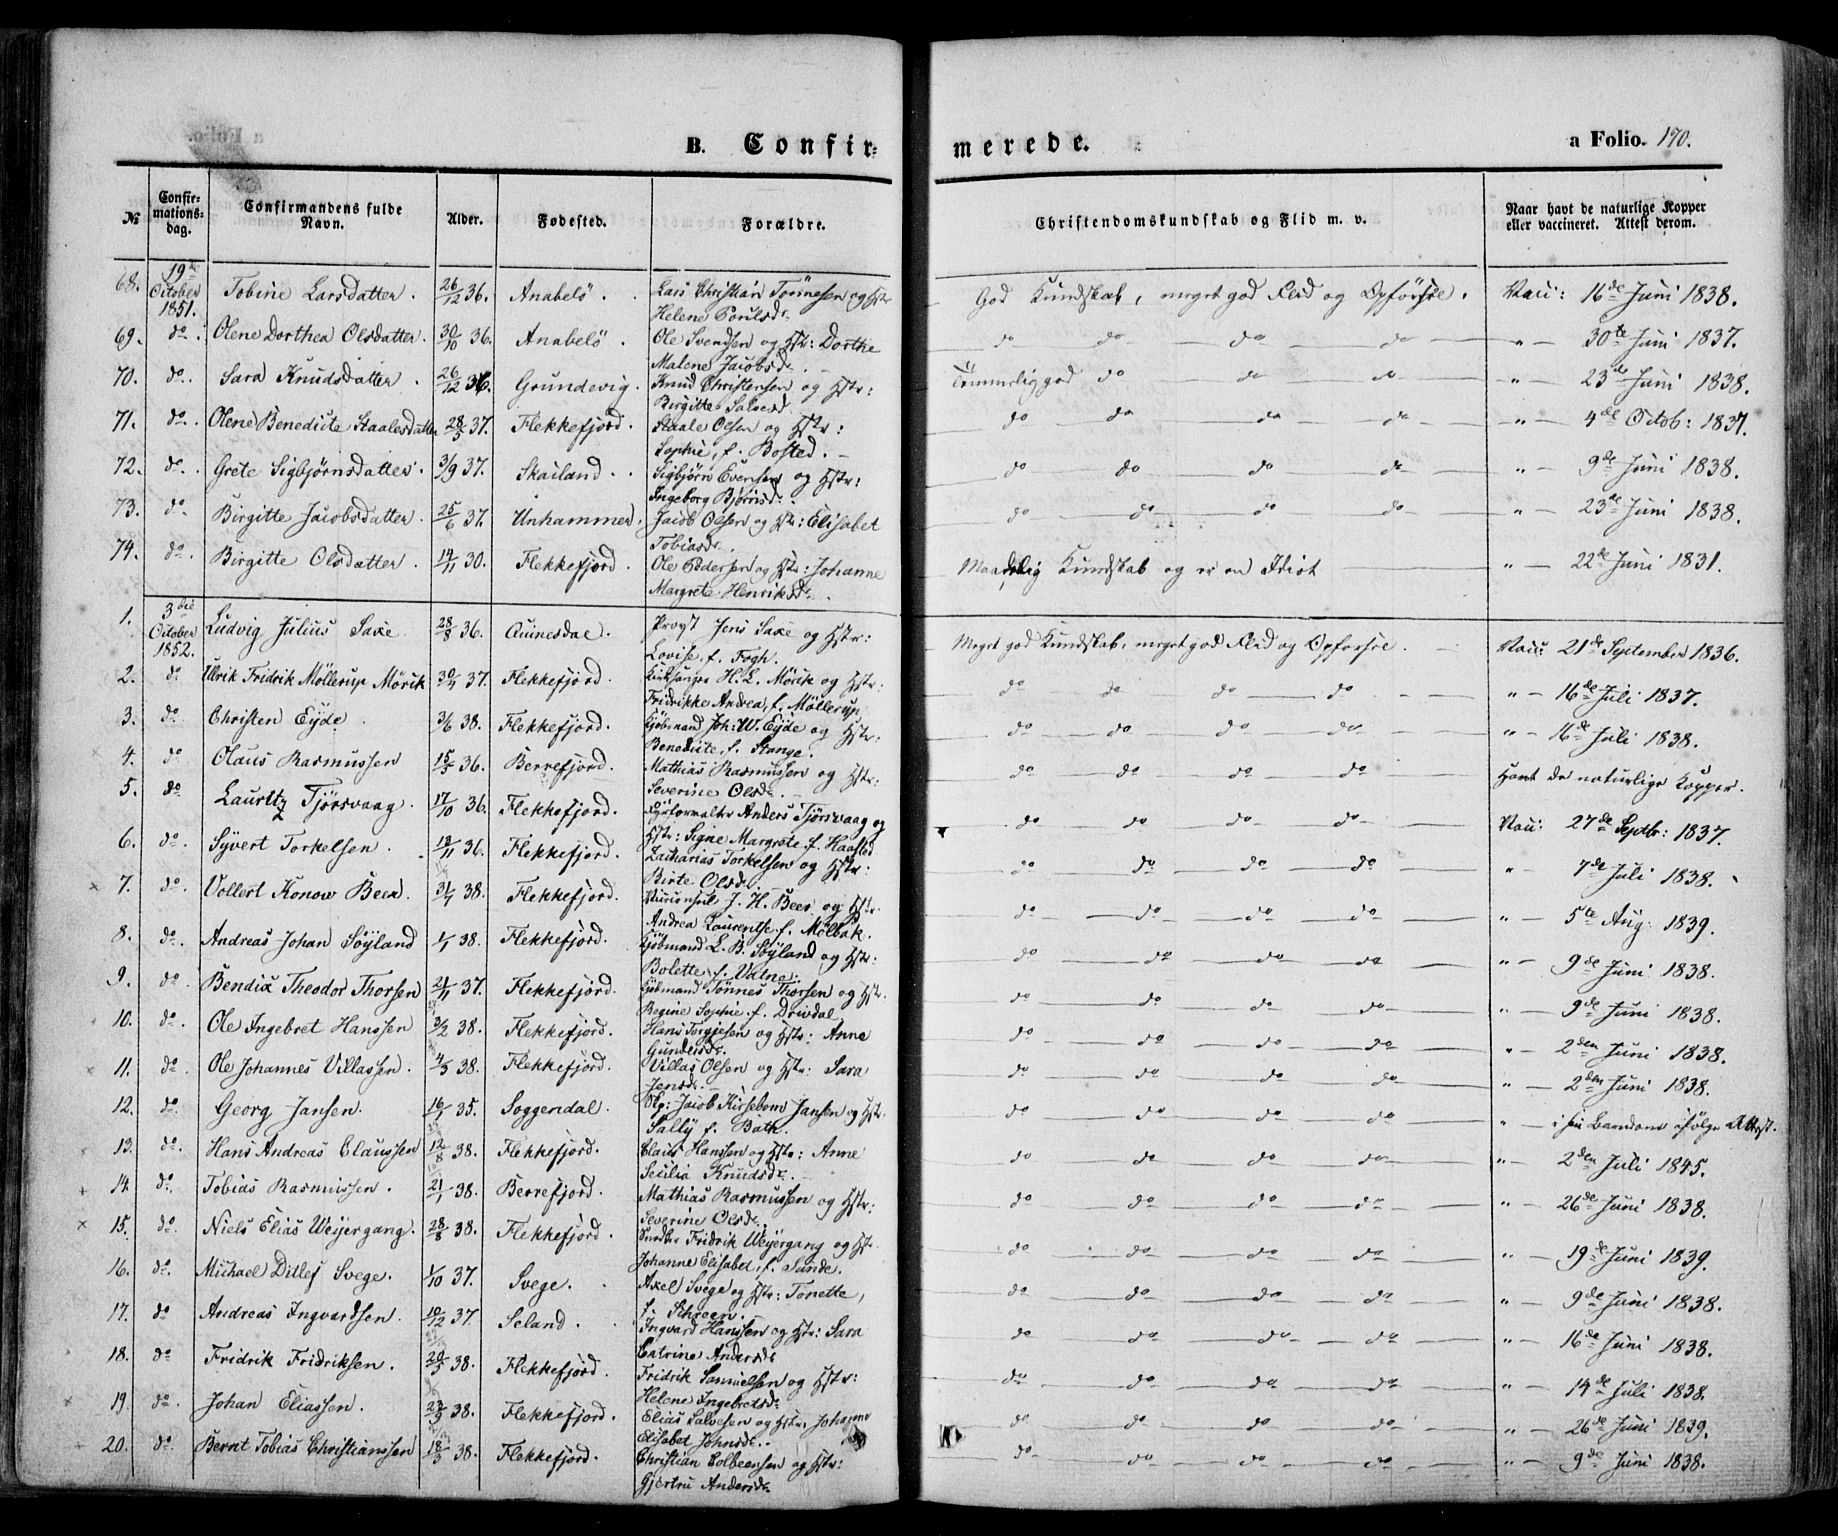 B. Confir- merede. a Folio. 190.
№ Confir-mations-dag. Confirmandens fulde Navn. Alder. Fødested. Forældre. Christendomskundskab og Flid m. v. Naar havt de naturlige Kopper eller vaccineret. Attest derom.
68. 19de October 1851. Tobine Larsdatter. 26/12 36. Anabelö. Lars Christian Tönnesen og Hstr Helene Poulsdr. God Kundskab, meget god Flid og Opförsel. Vacc: 16de Juni 1838.
69. do. Olene Dorthea Olsdatter. 30/10 36. Anabelö. Ole Svendsen og Hstr: Dorthe Malene Jacobsdr. do do do do " 30te Juni 1837.
70. do. Sara Knudsdatter. 26/12 36. Grundevig. Knud Christensen og Hstr: Birgitte Salvesd. Temmelig god do do do " 23de Juni 1838.
71. do. Olene Benedicte Staalesdatter 28/5 37. Flekkefjord. Staale Olsen og Hstr: Sophie, f. Bosted. do do do do " 4de Octob: 1837.
72. do. Grete Sigbjørnsdatter. 3/9 37. Skailand. Sigbjörn Evensen og Hstr: Ingeborg Bjørnsd. do do do do " 9de Juni 1838.
73. do. Birgitte Jacobsdatter. 25/6 37. Unhammer. Jacob Olsen og Hstr: Elisabet Tobiasdr. do do do do " 23de Juni 1838.
74. do. Birgitte Olsdatter. 14/11 30. Flekkefjord. Ole Pedersen og Hstr: Johanne Margrete Henriksdr. Maadelig Kundskab og er en Idiot " 22de Juni 1831.
1. 3die October 1852. Ludvig Julius Saxe. 28/8 36. Quinesdal. Provst Jens Saxe og Hstr: Lovise, f. Fogh. Meget god Kundskab, meget god Flid og Opførsel. Vacc: 21de September 1836.
2. do Ulrik Fridrik Möllerup Mörik 30/4 37. Flekkefjord. Kirksanger H. L. Mörik og Hstr: Fridrikke Andrea, f. Möllerup. do do do do " 16de Juli 1837.
3. do Christen Eyde. 3/6 38. Flekkefjord. Kjöbmand Joh: W. Eyde og Hstr: Benedicte, f. Stange. do do do do " 16de Juli 1838.
4. do Olaus Rasmussen 15/3 36. Berrefjord. Mathias Rasmussen og Hstr: Severine Olsdr. do do do do Havt de naturlige Kopper.
5. do Lauritz Tjörsvaag. 17/10 36. Flekkefjord. Fyrforvalter Anders Tjörsvaag og Hstr: Signe Margrete f. Haasted do do do do Vacc: 27de Septbr: 1837.
6. do. Syvert Torkelsen. 18/11 36. Flekkefjord. Zacharias Torkelsen og Hstr: Birte Olsd. do do do do " 7de Juli 1838.
7. do. Vollert Konow Beer. 31/7 38. Flekkefjord. Viceconsul J. H. Beer og Hstr. Andrea Laurentse f. Mölbak. do do do do " 5te Aug: 1839.
8. do. Andreas Johan Söyland 1/1 38. Flekkefjord. Kjöbmand L. B. Söyland og Hstr: Bolette f. Valne. do do do do " 9de Juni 1838.
9. do. Bendix Theodor Thorsen 21/11 37. Flekkefjord. Kjöbmand Tönnes Thorsen og Hst. Regine Sophie f. Drivdal do do do do " 9de Juni 1838.
10. do. Ole Ingebret Hanssen 3/2 38. Flekkefjord. Hans Torgjesen og Hstr: Anne Gundersdr. do do do do " 2den Juni 1838.
11. do. Ole Johannes Villassen. 4/3 38. Flekkefjord. Villas Olsen og Hstr: Sara Jensdr. do do do do " 2den Juni 1838.
12. do. Georg Jansen. 16/1 35. Soggendal. Skp: Jacob Kirsebom Jansen og Hst: Sally f. Bath. do do do do " i sin Barndom ifølge Attest.
13. do. Hans Andreas Claussen 12/8 38. Flekkefjord. Claus Hanssen og Hstr: Anne Secilia Knudsdr. do do do do " 2den Juli 1845.
14. do. Tobias Rasmussen. 21/1 38. Berrefjord. Mathias Rasmussen og Hstr: Severine Olsdr. do do do do " 26de Juni 1838.
15. do. Niels Elias Weyergang. 28/8 38. Flekkefjord. Fridrik Weyergang og Hstr Johanne Elisabet, f. Sunde. do do do do " 19de Juni 1839.
16. do. Michael Ditlef Svege. 1/10 37. Svege. Axel Svege og Hstr: Tonette, f. Schreen. do do do do " 9de Juni 1838.
17. do Andreas Ingvardsen. 10/12 37. Seland. Ingvard Hanssen og Hstr: Sara Catrine Andersdr do do do do " 16de Juni 1838.
18. do Fridrik Fridriksen. 20/3 38. Flekkefjord. Fridrik Samuelsen og Hstr: Helene Ingebretsdr. do do do do " 14de Juli 1838.
19. do. Johan Eliassen. 23/9 38. Flekkefjord. Elias Salvesen og Hstr. Johanne Elisabet Johnsdr. do do do do " 26de Juni 1839.
20. do. Bernt Tobias Christianssen 18/3 38. Flekkefjord. Christian Colbeensen og Hstr: Gjertru Andersdr. do do do do " 9de Juni 1838.